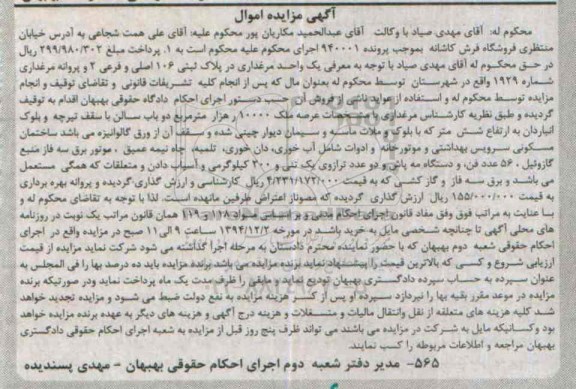 آگهی مزایده اموال
محکوم له: آقای مهدی صیاد با وکالت آقای عبدالحمید مکاریان پور محکوم علیه: آقای علی همت شجاعی به آدرس خیابان
منتظری فروشگاه فرش کاشانه بموجب پرونده ۹۴۰۰۰۱ اجرای محکوم علیه محکوم است به ۱. پرداخت مبلغ ۲۹۹/۹۸۰/۳۰۲ ریال
در حق محکوم له آقای مهدی صیاد با توجه به معرفی یک واحد مرغداری در پلاک ثبتی ۱۰۶ اصلی و فرعی ۲ و پروانه مرغداری
شماره ۱۹۲۹ واقع در شهرستان توسط محکوم له بعنوان مال که پس از انجام کلیه تشریفات قانونی و تقاضای توقیف و انجام
مزایده توسط محکوم له و استفاده از عواید ناشی از فروش آن حسب دستور اجرای احکام دادگاه حقوقی بهبهان اقدام به توقیف
گردیده و طبق نظریه کارشناس مرغداری با مشخصات عرصه ملک ۱۰۰۰۰ ر هزار مترمربع دو باب سالن با سقف تیرچه و بلوک
انباردان به ارتفاع شش متر که با بلوک و ملات ماسه و سیمان دیوار چینی شده و سقف آن از ورق گالوانیزه می باشد ساختمان
مسکونی سرویس بهداشتی و موتورخانه و ادوات شامل آب خوری، دان خوری، تلمبه، چاه نیمه عمیق، موتور برق سه فاز منبع
گازوئیل، ۵۶۰ عدد فن، و دستگاه مه پاش و دو عدد ترازوی یک تنی و ۳۰۰ کیلوگرمی و آسیاب دادن و متعلقات که همگی مستعمل
می باشد و برق سه فاز و گاز کشی که به قیمت ۴/۲۳۱/۱۷۲/۰۰۰ ریال کارشناسی و ارزش گذاری گردیده و پروانه بهره برداری
به قیمت ۱۵۵/۰۰۰/۰۰۰ ریال ارزش گذاری گردیده که مصون از اعتراض طرفین مانهده است. لذا با توجه به تقاضای محکوم له و
با عنایت به مراتب فوق وفق مفاد قانون اجرای احکام مدنی و بر اساس مواد ۱۱۸ و ۱۱۹ همان قانون مراتب یک نوبت در روزنامه
های محلی آگهی تا چنانچه شخصی مایل به خرید باشد در مورخه ۱۳۹۴/۱۲/۲ ساعت ۹ الی ۱۱ صبح در مزایده واقع در اجرای
احکام حقوقی شعبه دوم بهبهان که با حضور نماینده محترم دادستان به مرحله اجرا گذاشته می شود شرکت نماید مزایده از قیمت
ارزیابی شروع و کسی که بالاترین قیمت را پیشنهاد نماید برنده مزایده می باشد برنده مزایده باید ده درصد بها را فی المجلس به
عنوان سپرده به حساب سپرده دادگستری بهبهان تودیع نماید و مابقی را ظرف مدت یک ماه پرداخت نماید ودر صورتیکه برنده
مزایده در موعد مقرر بقیه بها را نپردازد سپرده او پس از کسر هزینه مزایده به نفع دولت ضبط می شود و مزایده تجدید خواهد
شد کلیه هزینه های متعلقه از نقل وانتقال مالیات و مستغلات و هزینه درج آگهی و هزینه های دیگر به عهده برنده مزایده خواهد
بود وکسانیکه مایل به شرکت در مزایده می باشند می تواند ظرف پنج روز قبل از مزایده به شعبه اجرای احکام حقوقی دادگستری
بهبهان مراجعه و اطلاعات مربوطه را کسب نمایند.
۵۶۵- مدیر دفتر شعبه دوم اجرای احکام حقوقی بهبهان - مهدی پسندیده